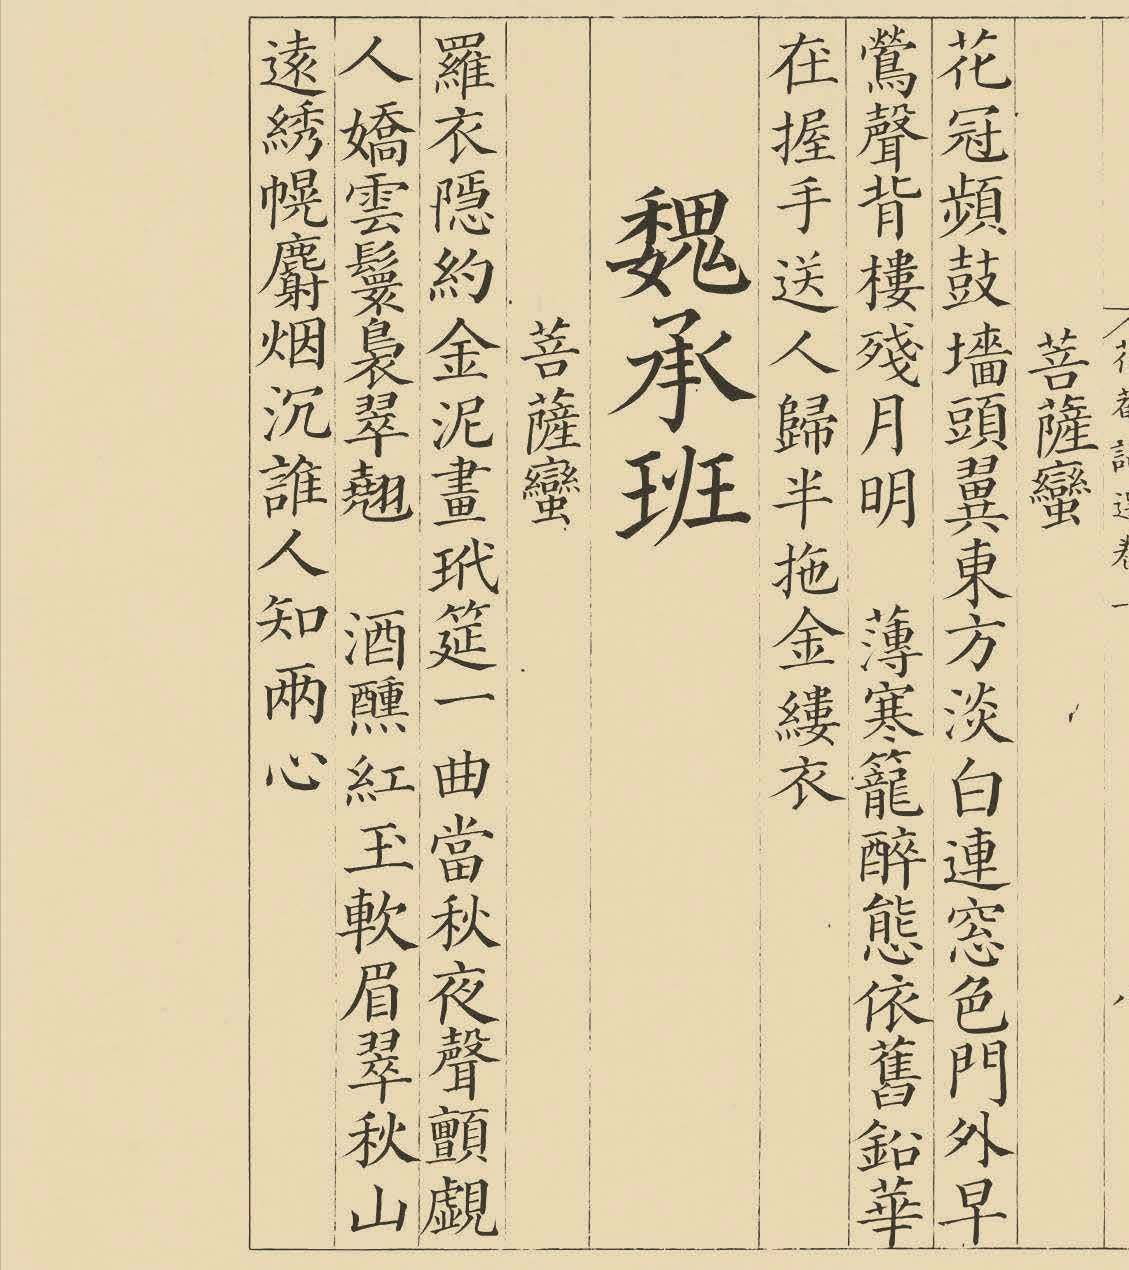 花菴詞選卷一
菩薩蠻
花冠頻鼓墻頭翼東方淡白連窓色門外早
鶯聲背樓殘月明　薄寒籠醉態依舊鉛華
在握手送人歸半拖金縷衣
魏承班
菩薩蠻
羅衣隠約金泥畫玳筵一曲當秋夜聲顫覷
人嬌雲鬟裊翠翹　酒醺紅玉軟眉翠秋山
遠綉幌麝烟沉誰人知兩心